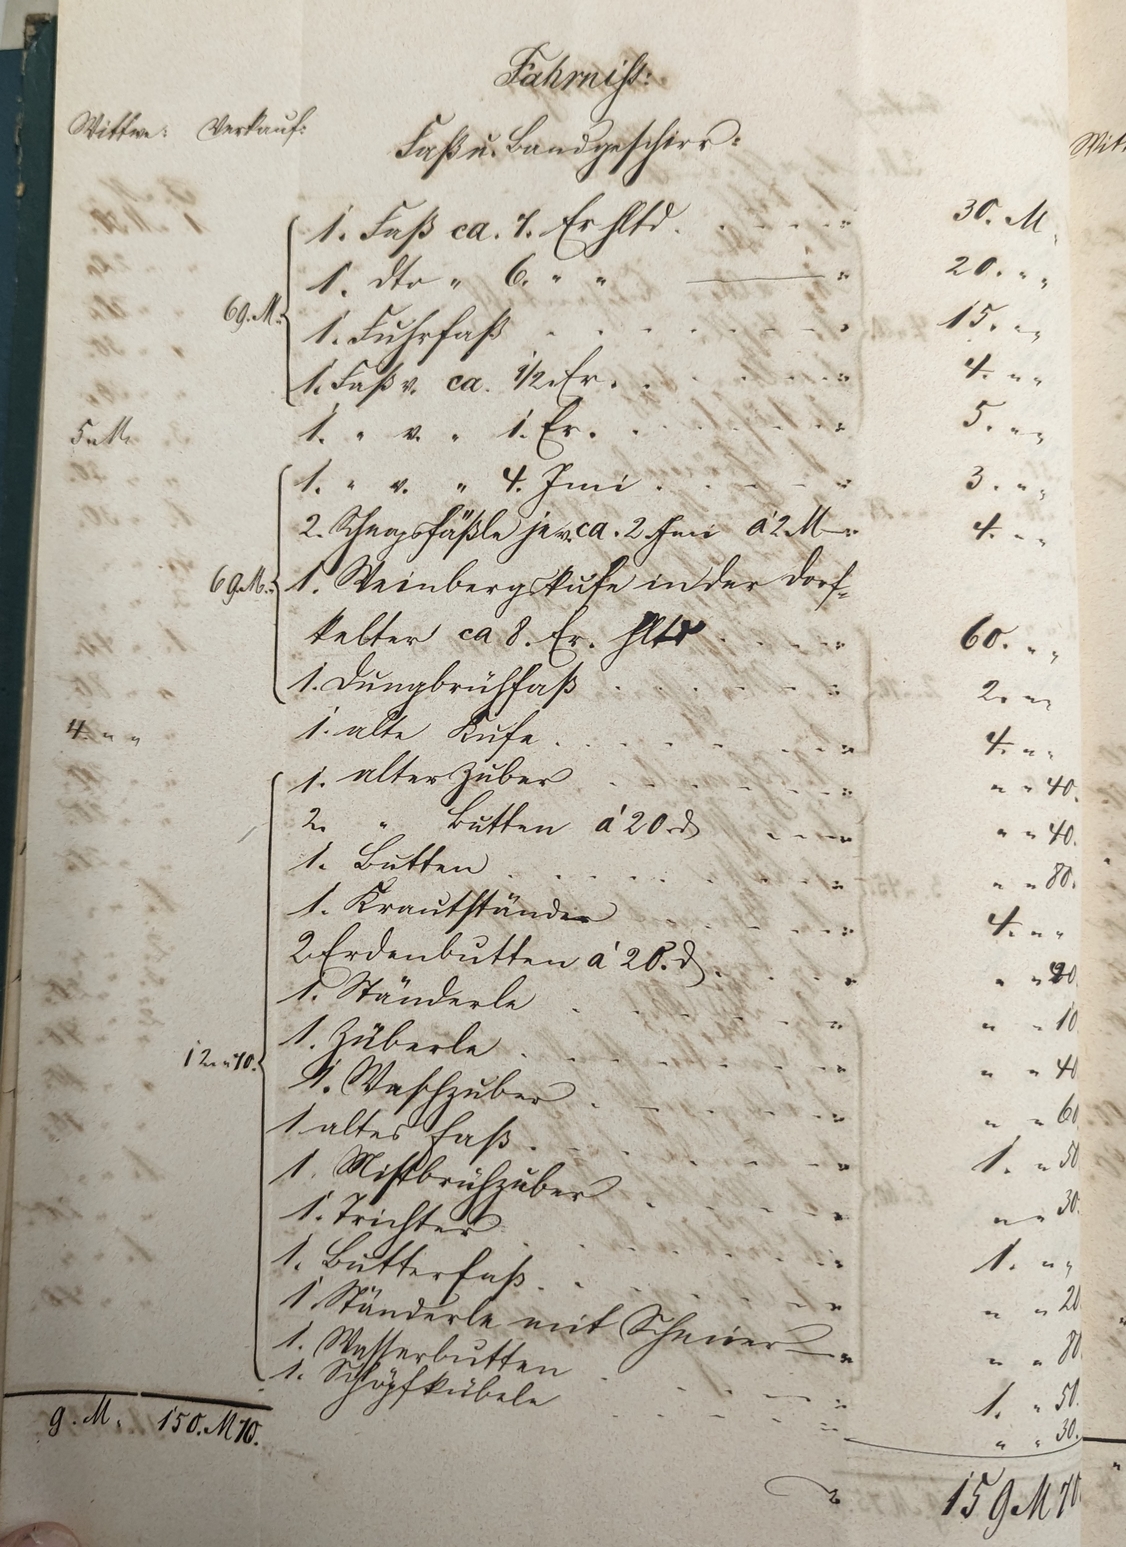 Fahrniß:
Wittwe: Verkauf: Faß u. Bandgeschirr:
1. Faß ca. 7. Er hltd. . . . " 30. M
1. dto " 6. " " — " 20. " "
69. M. 1. Fuhrfaß . . . " 15. " "
1. Faß v. ca. 1/2 Er. . . . " 4. " "
5 M. 1. " v. " 1. Er. . . . " 5. " "
1. " v. " 4. Imi . . . " 3. " "
2. Schnapsfäßle je v. ca. 2 Imi á 2 M — " 4. " "
69. M. 1. Weinbergskufe in der Dorf-
kelter ca 8. Er. hltd . . . " 60. " "
1. Dungbrühfaß . . . " 2. " "
4. " " 1. alte Kufe . . . " 4. " "
1. alter Zuber . . . " " " 40.
2. " Butten á 20 d . . . " " " 40.
1. Butten . . . " " " 80.
1. Krautstanden . . . " 4. " "
2 Erdenbutten á 20. d . . . " " "
1. Ständerle . . . " " " 10
1. Züberle . . . " " " 40
12. " 70. 1. Waschzuber . . . " " " 60
1 altes Faß . . . " 1. " 50
1. Mistbrühzuber . . . " " " 30.
1. Trichter . . . " 1. " "
1. Butterfaß . . . " " " 20
1 Ständerle mit — " " " 80
1. Wasserbutten . . . " 1. " 50.
1. Schöpfkübele . . . " " " 30.
9. M. 150. M 70.
159 M 70